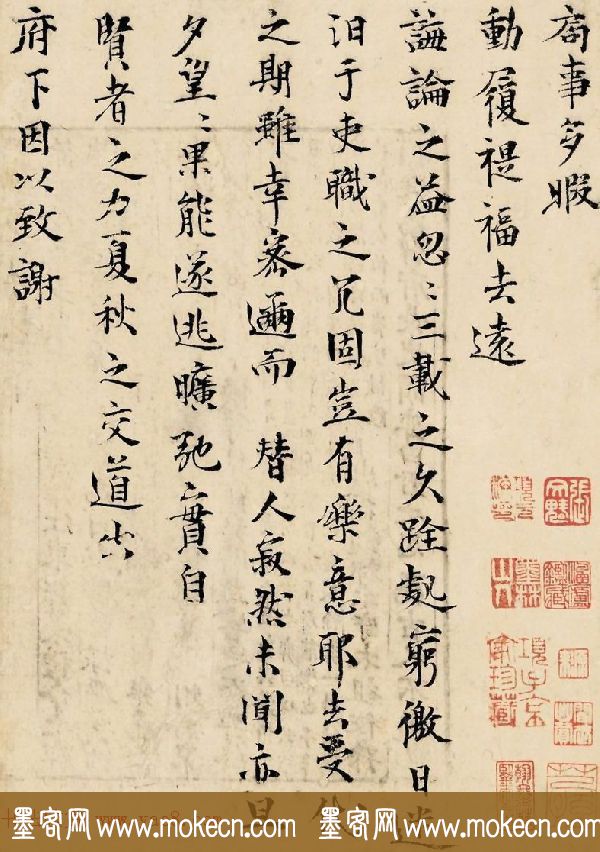 局事多暇
動履禔福去遠
誨論之益忽〻三載之久跧處窮徼日迷
汨于吏職之冗固豈有樂意耶去受代
之期雖幸密邇而 替人寂然未聞亦旦
夕望〻果能遂逃曠弛實自
賢者之力夏秋之交道出
府下因以致謝
項子京家珍藏
墨客网 www.mokecn.com 墨客网 www.mokecn.com